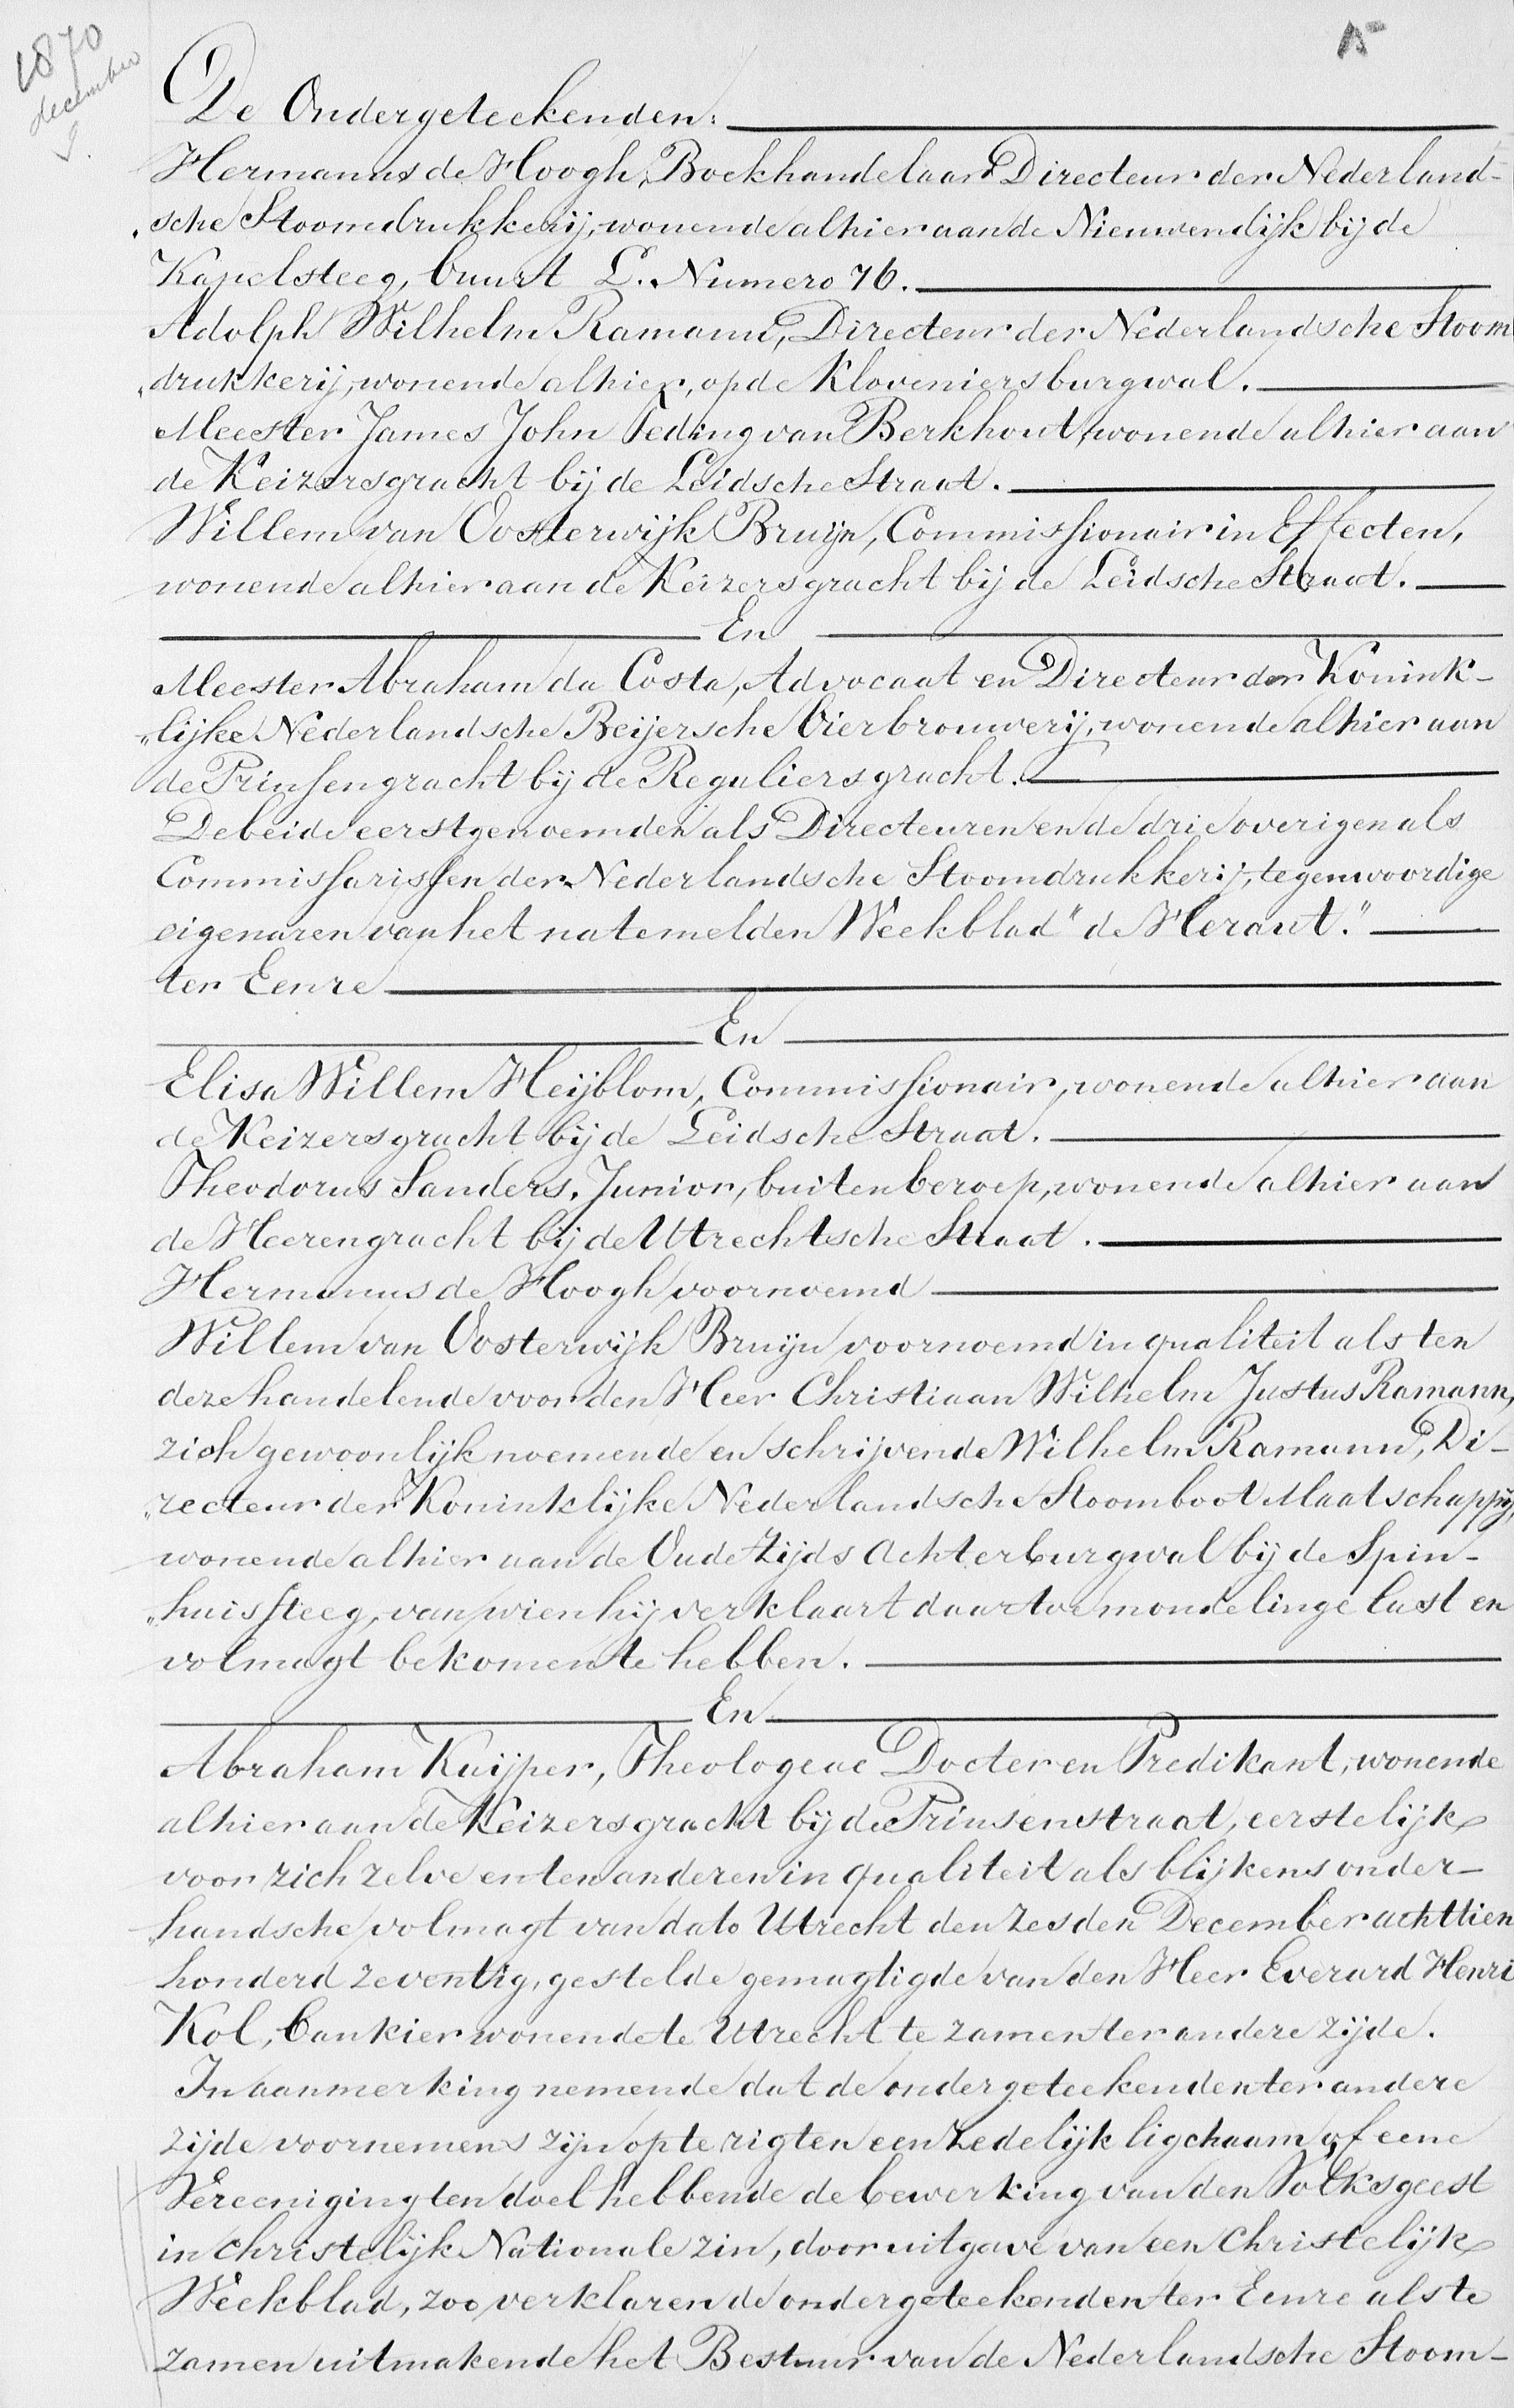 1870
december
De Ondergeteekenden:
Hermanus de Hoogh, Boekhandelaar & Directeur der Nederland-
„sche Stoomdrukkerij, wonende alhier aan de Nieuwendijk bij de
Kapelsteeg, buurt L. Numero 76.
Adolph Wilhelm Ramann, Directeur der Nederlandsche Stoom
„drukkerij, wonende alhier, op de Kloveniersburgwal.
Meester James John Teding van Berkhout, wonende alhier aan
de Keizersgracht bij de Leidsche Straat.
Willem van Oosterwijk Bruijn, Commissionair in Effecten,
wonende alhier aan de Keizersgracht bij de Leidsche Straat.
En
Meester Abraham da Costa, Advocaat en Directeur der Konink-
„lijke Nederlandsche Beijersche Bierbrouwerij, wonende alhier aan
de Prinsengracht bij de Reguliersgracht.
De beide eerstgenoemden als Directeuren en de drie overigen als
Commissarissen der Nederlandsche Stoomdrukkerij, tegenwoordige
eigenaren van het natemelden Weekblad "de Heraut."
ter Eenre
En
Elisa Willem Heijblom, Commissionair, wonende alhier aan
de Keizersgracht bij de Leidsche Straat.
Theodorus Sanders, Junior, buiten beroep, wonende alhier aan
de Heerengracht bij de Utrechtsche Straat.
Hermanus de Hoogh voornoemd
Willem van Oosterwijk Bruijn voornoemd in qualiteit als ten
deze handelende voor den Heer Christiaan Wilhelm Justus Ramann,
zich gewoonlijk noemende en schrijvende Wilhelm Ramann, Di-
„recteur der Koninklijke Nederlandsche Stoomboot Maatschappij,
wonende alhier aan de Oude Zijds Achterburgwal bij de Spin-
„huissteeg, van wien hij verklaart daartoe mondelinge last en
volmagt bekomen te hebben.
En
Abraham Kuijper, Theologeae Docter en Predikant, wonende
alhier aan de Keizersgracht bij de Prinsenstraat, eerstelijk
voor zich zelve en ten anderen in qualiteit als blijkens onder-
„handsche volmagt van dato Utrecht den zesden December achttien
honderd zeventig, gestelde gemagtigde van den Heer Everard Henri
Kol, bankier wonende te Utrecht te zamen ter andere zijde.
In aanmerking nemende dat de ondergeteekenden ter andere
zijde voornemens zijn op te rigten een zedelijk ligchaam of eene
Vereeniging ten doel hebbende de bewerking van den Volksgeest
in Christelijk Nationale zin, door uitgave van een Christelijk
Weekblad, zoo verklaren de ondergeteekenden ter Eenre als te
zamen uitmakende het Bestuur van de Nederlandsche Stoom-